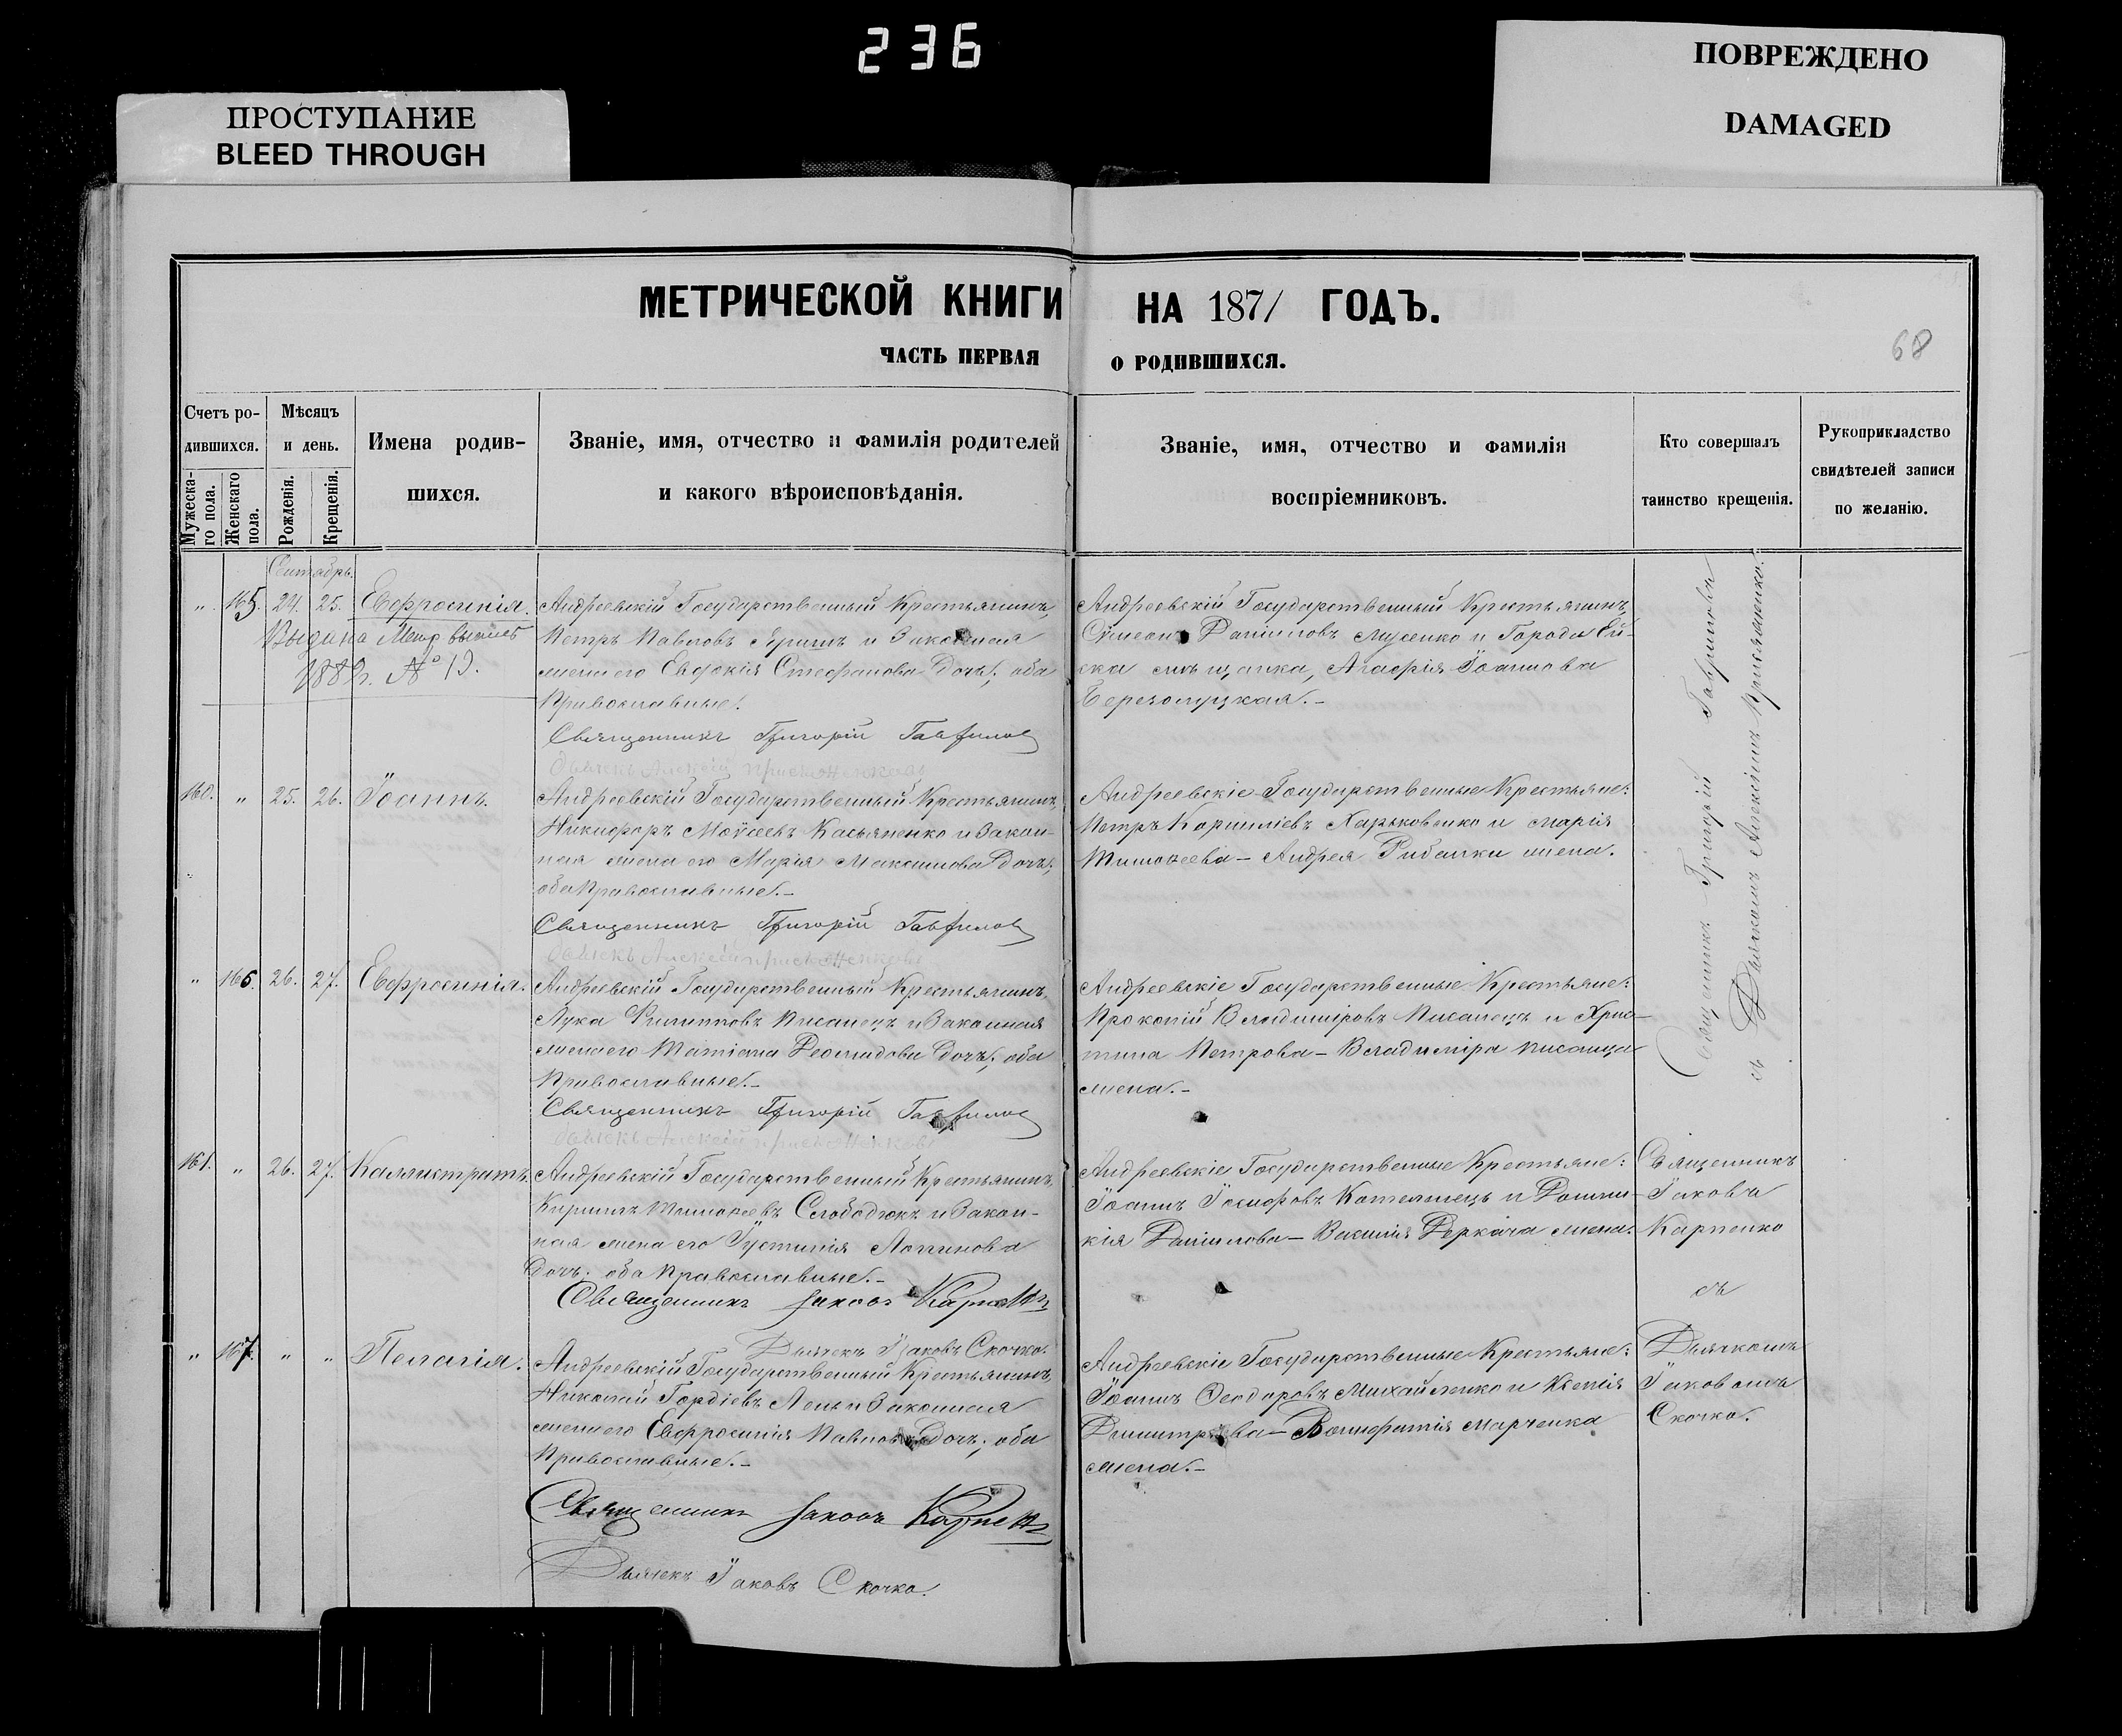 236
ПРОСТУПАНИЕ
BLEED THROUGH
ПОВРЕЖДЕНО
DAMAGED
МЕТРИЧЕСКОЙ КНИГИ НА 1871 ГОДЪ.
ЧАСТЬ ПЕРВАЯ О РОДИВШИХСЯ.
68
Счетъ ро-
дившихся.
Мужеска-
го пола.
Женскаго
пола.
Мѣсяцъ
и день.
Рожденія.
Крещенія.
Имена родив-
шихся.
Званіе, имя, отчество и фамилія родителей
и какого вѣроисповѣданія.
Званіе, имя, отчество и фамилія
воспріемниковъ.
Кто совершалъ
таинство крещенія.
Рукоприкладство
свидѣтелей записи
по желанію.
Сентябрь.
„ 165. 24. 25. Евфросинія.
Выдана Метр. выпись
1889 г. № 19.
Андреевскій Государственный Крестьянинъ,
Петръ Павловъ и Законная
жена его Евдокія Стефанова Дочь; оба
Православные.
Священникъ Григорій Гаврилов
Андреевскій Государственный Крестьянинъ,
Симеонъ Даниловъ и Города Ей-
ска мѣщанка, Агафія Іоаннова
Березолуцкая.-
160. „ 25. 26. Іоаннъ.
Андреевскій Государственный Крестьянинъ,
Никифоръ Моѵсеевъ Касьяненко и Закон-
ная жена его Марія Максимова Дочь;
оба Православные.-
Священникъ Григорій Гаврилов
Андреевскіе Государственные Крестьяне:
Петръ Корниліевъ Харьковенко и Марія
Тимоѳеева - Андрея Рибалки жена.
„ 166. 26. 27. Евфросинія.
Андреевскій Государственный Крестьянинъ,
Лука Филипповъ Писанецъ и Законная
жена его Татіана Деомидова Дочь; оба
Православные.-
Священникъ Григорій Гаврилов
Андреевскіе Государственные Крестьяне:
Прокопій Владиміровъ Писанецъ и Хрис-
тина Петрова - Владиміра Писанца
жена.-
Священникъ Григорій Гавриловъ
съ Дьячкомъ Алексіемъ
161. „ 26. 27. Каллистратъ.
Андреевскій Государственный Крестьянинъ,
Кириллъ Тимоѳеевъ Слободюкъ и Закон-
ная жена его Іустинія Логгинова
Дочь; оба Православные.-
Священникъ Іаковъ Карпенко
Дьячекъ Іаковъ Скочко.
Андреевскіе Государственные Крестьяне:
Іоаннъ Іосифовъ Котелнецъ и Домни-
кія Данилова - Василія Деркача жена.
Священникъ
Іаковъ
Карпенко
съ
Дьячкомъ
Іаковомъ
Скочко.
„ 167. „ „ Пелагія.
Андреевскій Государственный Крестьянинъ,
Николай Гордіевъ Лень и Законная
жена его Евфросинія Павлова Дочь; оба
Православные.-
Священникъ Іаковъ Карпенко
Дьячекъ Іаковъ Скочко.
Андреевскіе Государственные Крестьяне:
Іоаннъ Ѳеодоровъ Михайленко и Ксенія
Димитріева - Вонифатія Марченка
жена.-